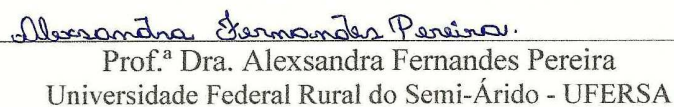 Alexsandra Fernandes Pereira.
Prof.ª Dra. Alexsandra Fernandes Pereira
Universidade Federal Rural do Semi-Árido - UFERSA